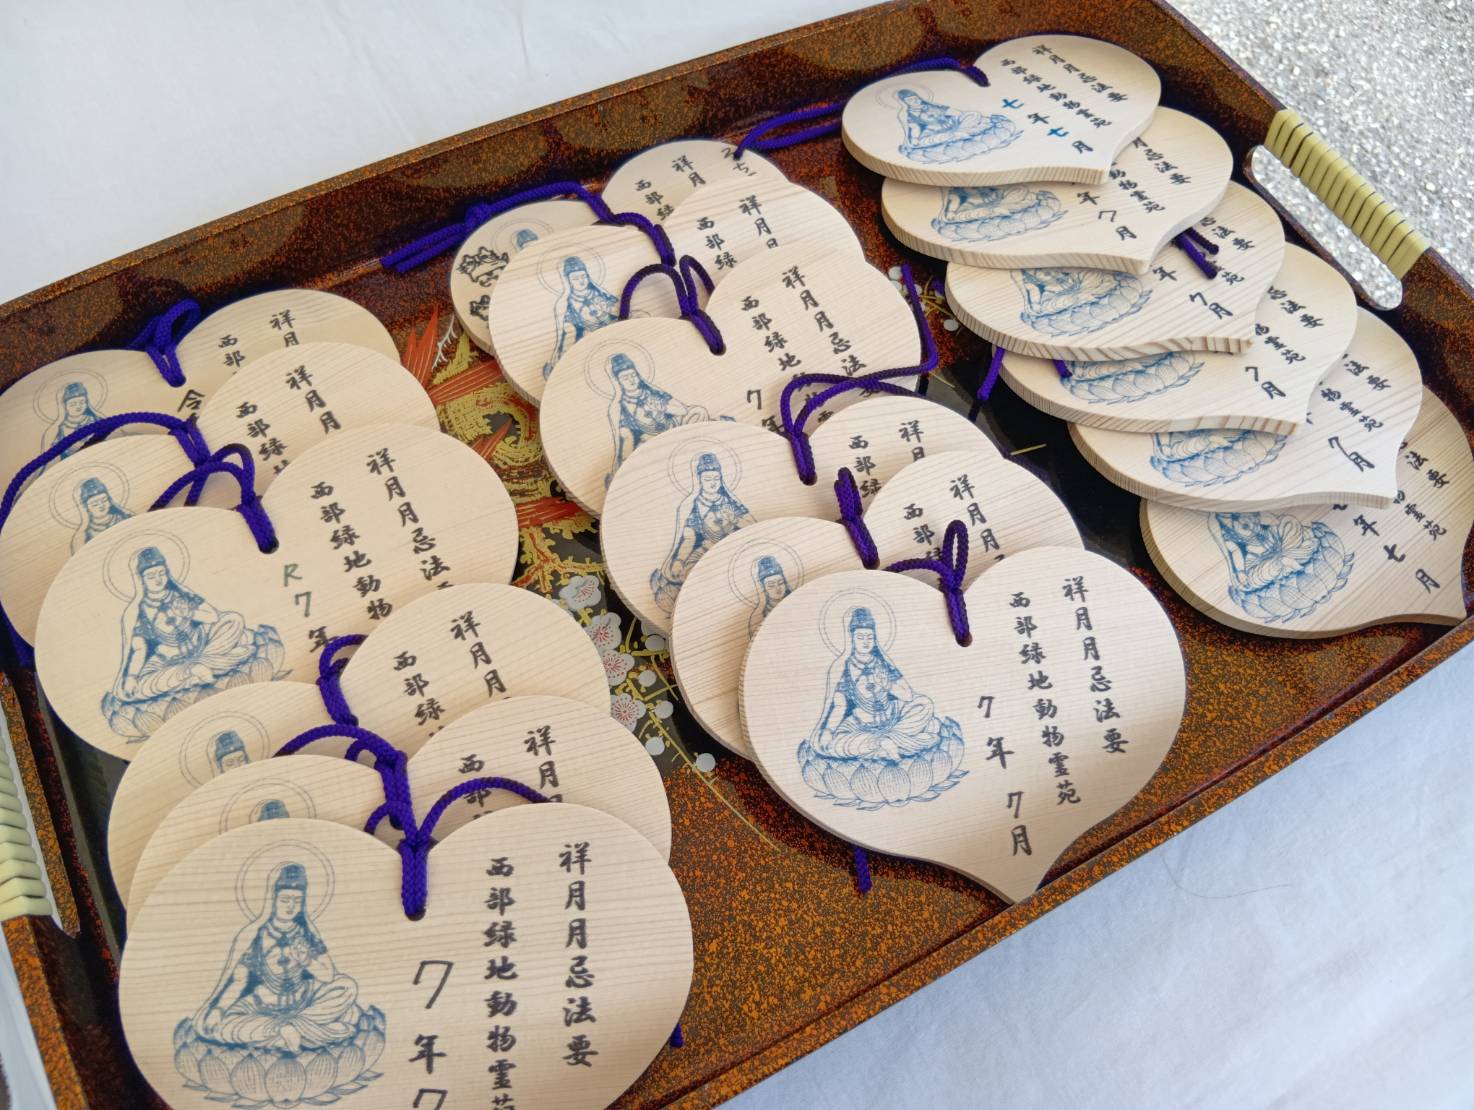 祥月
西部
令
祥月月
西部緑地
祥月月忌法
西部緑地動物
R7年
祥月月
西部緑
祥月
西部
祥月月忌法要
西部緑地動物霊苑
7年7
祥月
西部緑
祥月
西部緑
祥月月忌法
西部緑地
7年
祥月
西部緑
祥月月
西部緑
祥月月忌法要
西部緑地動物霊苑
7年7月
祥月月忌法要
西部緑地動物霊苑
七年七月
月忌法要
動物霊苑
年7月
法要
霊苑
年7月
忌法要
物霊苑
7月
法要
物霊苑
7月
法要
霊苑
年七月